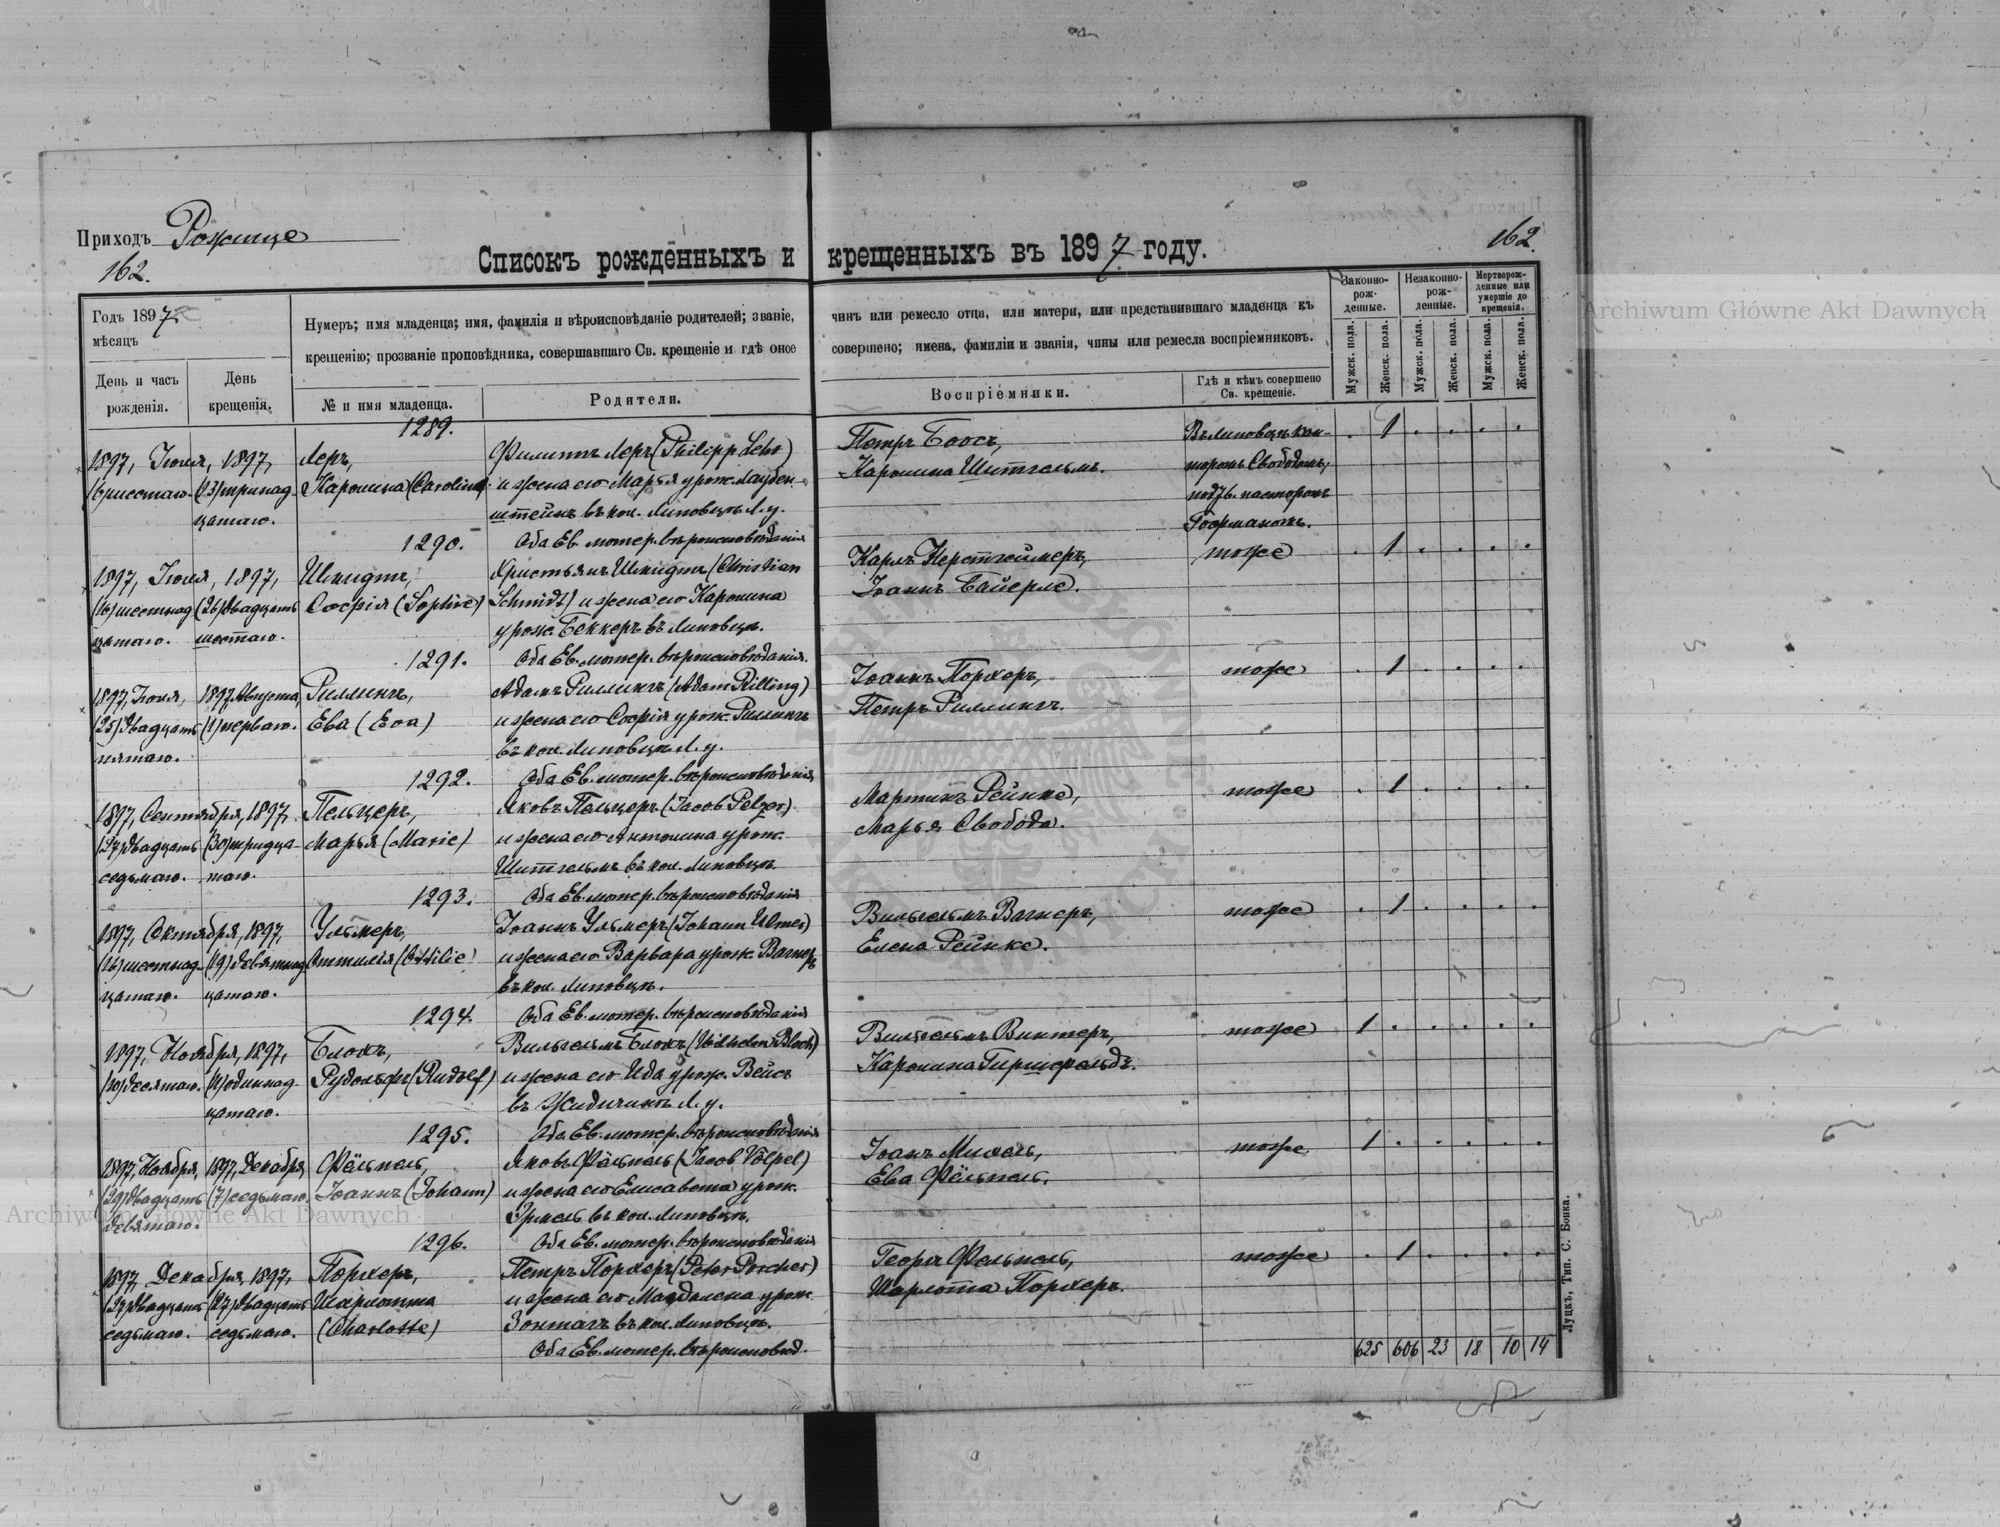 Приходъ Рожище
162.
162.
Списокъ рожденныхъ и крещенныхъ въ 1897 году.
Годъ 1897
мѣсяцъ
День и часъ рожденія.
День крещенія.
Нумеръ; имя младенца; имя, фамилія и вѣроисповѣданіе родителей; званіе, чинъ или ремесло отца, или матери, или представившаго младенца къ
крещенію; прозваніе проповѣдника, совершавшаго Св. крещеніе и гдѣ оное совершено; имена, фамиліи и званія, чины или ремесла воспріемниковъ.
№ и имя младенца.
Родители.
Воспріемники.
Гдѣ и кѣмъ совершено Св. крещеніе.
Законно-рож-денные.
Незаконно-рож-денные.
Мертворож-денные или умершіе до крещенія.
Мужск. пола.
Женск. пола.
Мужск. пола.
Женск. пола.
Мужск. пола.
Женск. пола.
1289.
1897, Іюля, 1897, Леръ, Филиппъ Леръ (Philipp Lehr) Петръ Боосъ, Въ Липовцѣ кан- . 1 . . . .
(6) шестаго. (13) тринад- Каролина (Caroline) и жена его Марья урож. Лаубен- Каролина Шитгельмъ. торомъ Свободомъ,
цатаго. штейнъ въ кол. Липовцѣ Л. у. подтв. пасторомъ
Оба Ев. лютер. вѣроисповѣданія Гоорманомъ.
1290.
1897, Іюля, 1897, Шмидтъ, Христьянъ Шмидтъ (Christian Карлъ Керстгеймеръ, тоже . 1 . . . .
(16) шестнад- (26) двадцать Софія (Sophie) Schmidt) и жена его Каролина Іоаннъ Байерле.
цатаго. шестаго. урож. Беккеръ въ Липовцѣ.
Оба Ев. лютер. вѣроисповѣданія.
1291.
1897, Іюля, 1897, Августа, Риллингъ, Адамъ Риллингъ (Adam Rilling) Іоаннъ Порхеръ, тоже . 1 . . . .
(25) двадцать (1) перваго. Ева (Eva) и жена его Софія урож. Риллингъ Петръ Риллингъ.
пятаго. въ кол. Липовцѣ Л. у.
Оба Ев. лютер. вѣроисповѣданія
1292.
1897, Сентября, 1897, Пельцеръ, Яковъ Пельцеръ (Jacob Pelzer) Мартинъ Рейнке, тоже . 1 . . . .
(27) двадцать (30) тридца- Марья (Marie) и жена его Антонина урож. Марья Свобода.
седьмаго. таго. Шитгельмъ въ кол. Липовцѣ.
Оба Ев. лютер. вѣроисповѣданія
1293.
1897, Октября, 1897, Ульмеръ, Іоаннъ Ульмеръ (Johann Ulmer) Вильгельмъ Вагнеръ, тоже . 1 . . . .
(16) шестнад- (19) девятнад- Оттилія (Ottilie) и жена его Варвара урож. Вагнеръ Елена Рейнке.
цатаго. цатаго. въ кол. Липовцѣ.
Оба Ев. лютер. вѣроисповѣданія
1294.
1897, Ноября, 1897, Блохъ, Вильгельмъ Блохъ (Wilhelm Bloch) Вильгельмъ Винтеръ, тоже 1 . . . . .
(10) десятаго. (11) одиннад- Рудольфъ (Rudolf) и жена его Ида урож. Вейсъ Каролина Гиршфельдъ.
цатаго. въ Жидичинѣ Л. у.
Оба Ев. лютер. вѣроисповѣданія
1295.
1897, Ноября, 1897, Декабря, Фёльпель, Яковъ Фёльпель (Jacob Völpel) Іоанъ Михель, тоже 1 . . . . .
(29) двадцать (7) седьмаго. Іоаннъ (Johann) и жена его Елисавета урож. Ева Фёльпель.
девятаго. въ кол. Липовцѣ.
Оба Ев. лютер. вѣроисповѣданія
1296.
1897, Декабря, 1897, Порхеръ, Петръ Порхеръ (Peter Porcher) Георгъ Фельпель, тоже . 1 . . . .
(27) двадцать (27) двадцать Шарлотта и жена его Магдалена урож. Шарлота Порхеръ.
седьмаго. седьмаго. (Charlotte) Зонтагъ въ кол. Липовцѣ.
Оба Ев. лютер. вѣроисповѣд.
625 606 23 18 10 14
Луцкъ, Тип. С. Бонка.
Archiwum Główne Akt Dawnych
Archiwum Główne Akt Dawnych